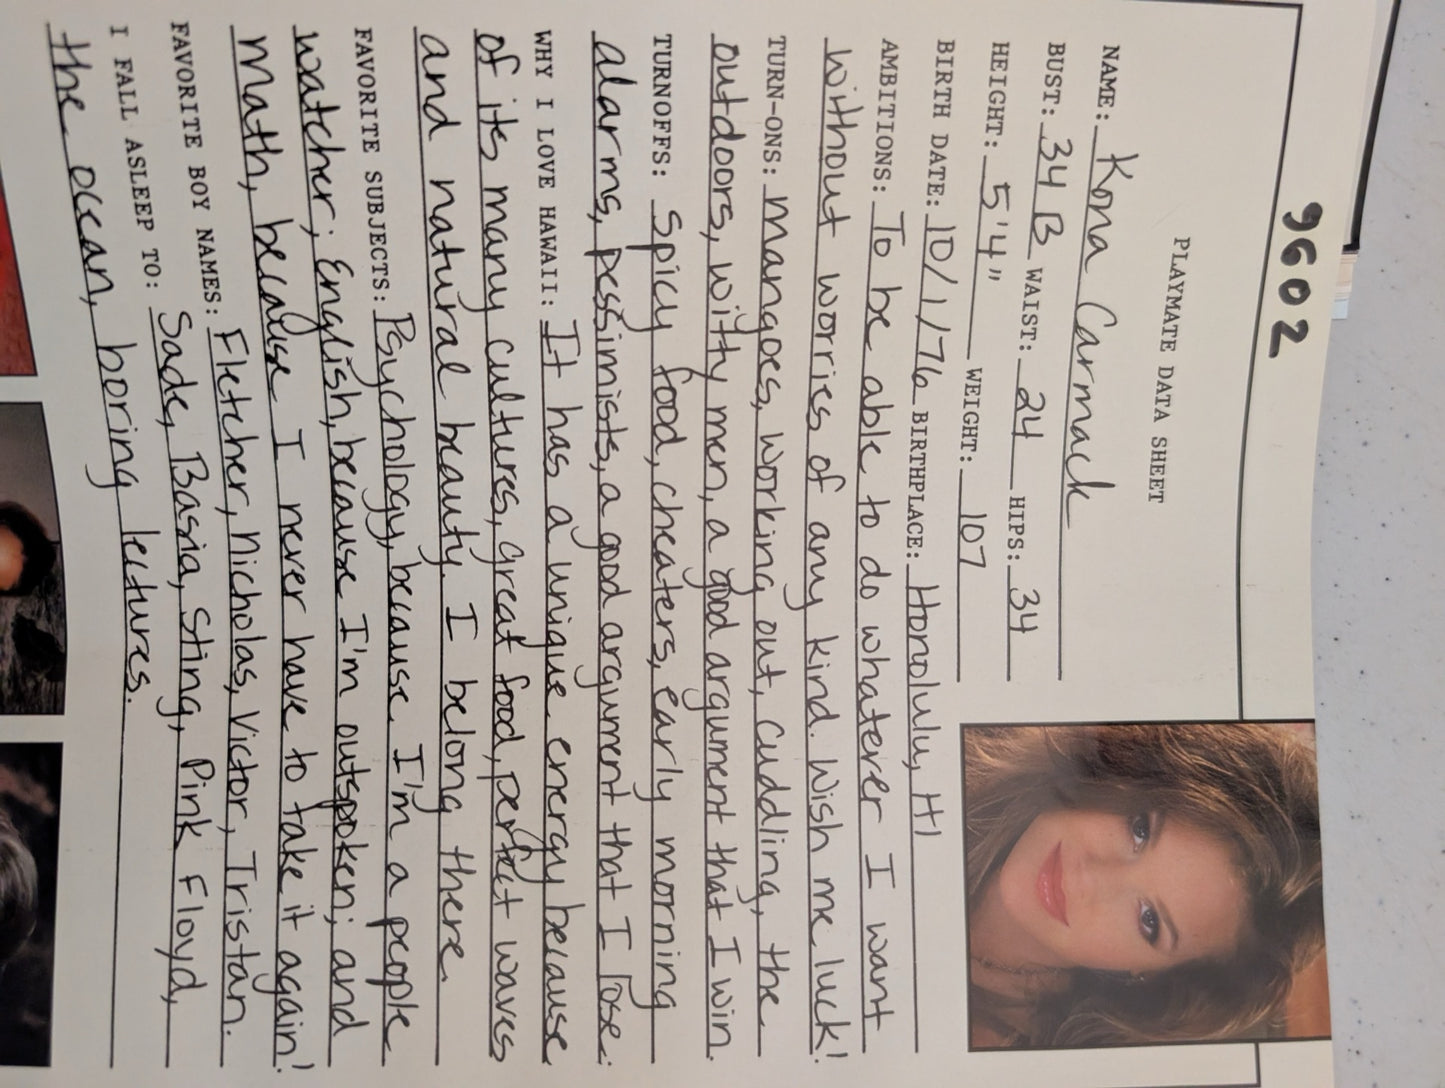 9602
PLAYMATE DATA SHEET
NAME: Kona Carmack
BUST: 34 B WAIST: 24 HIPS: 34
HEIGHT: 5'4" WEIGHT: 107
BIRTH DATE: 10/1/76 BIRTHPLACE: Honolulu, HI
AMBITIONS: To be able to do whatever I want
without worries of any kind. Wish me luck!
TURN-ONS: Mangoes, working out, cuddling, the
outdoors, witty men, a good argument that I win.
TURNOFFS: Spicy food, cheaters, early morning
alarms, pessimists, a good argument that I lose.
WHY I LOVE HAWAII: It has a unique energy because
of its many cultures, great food, perfect waves
and natural beauty. I belong there.
FAVORITE SUBJECTS: Psychology, because I'm a people
watcher; English, because I'm outspoken; and
math, because I never have to take it again!
FAVORITE BOY NAMES: Fletcher, Nicholas, Victor, Tristan.
I FALL ASLEEP TO: Sade, Basia, Sting, Pink Floyd,
the ocean, boring lectures.